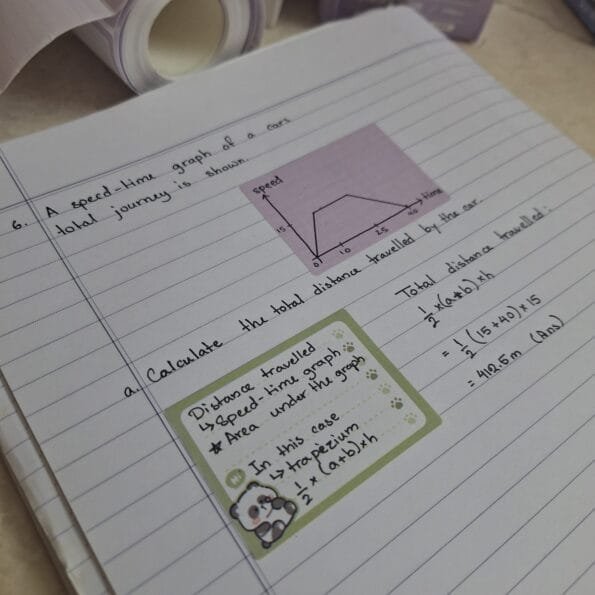 6. A speed-time graph of a cars
total journey is shown.
speed
15
0
10
25
40
time
a. Calculate the total distance travelled by the car.
Distance travelled
↳ speed-time graph
* Area under the graph
In this case
↳ trapezium
1/2 × (a+b)×h
Total distance travelled:
1/2 × (a+b) × h
= 1/2 (15+40)×15
= 412.5 m (Ans)